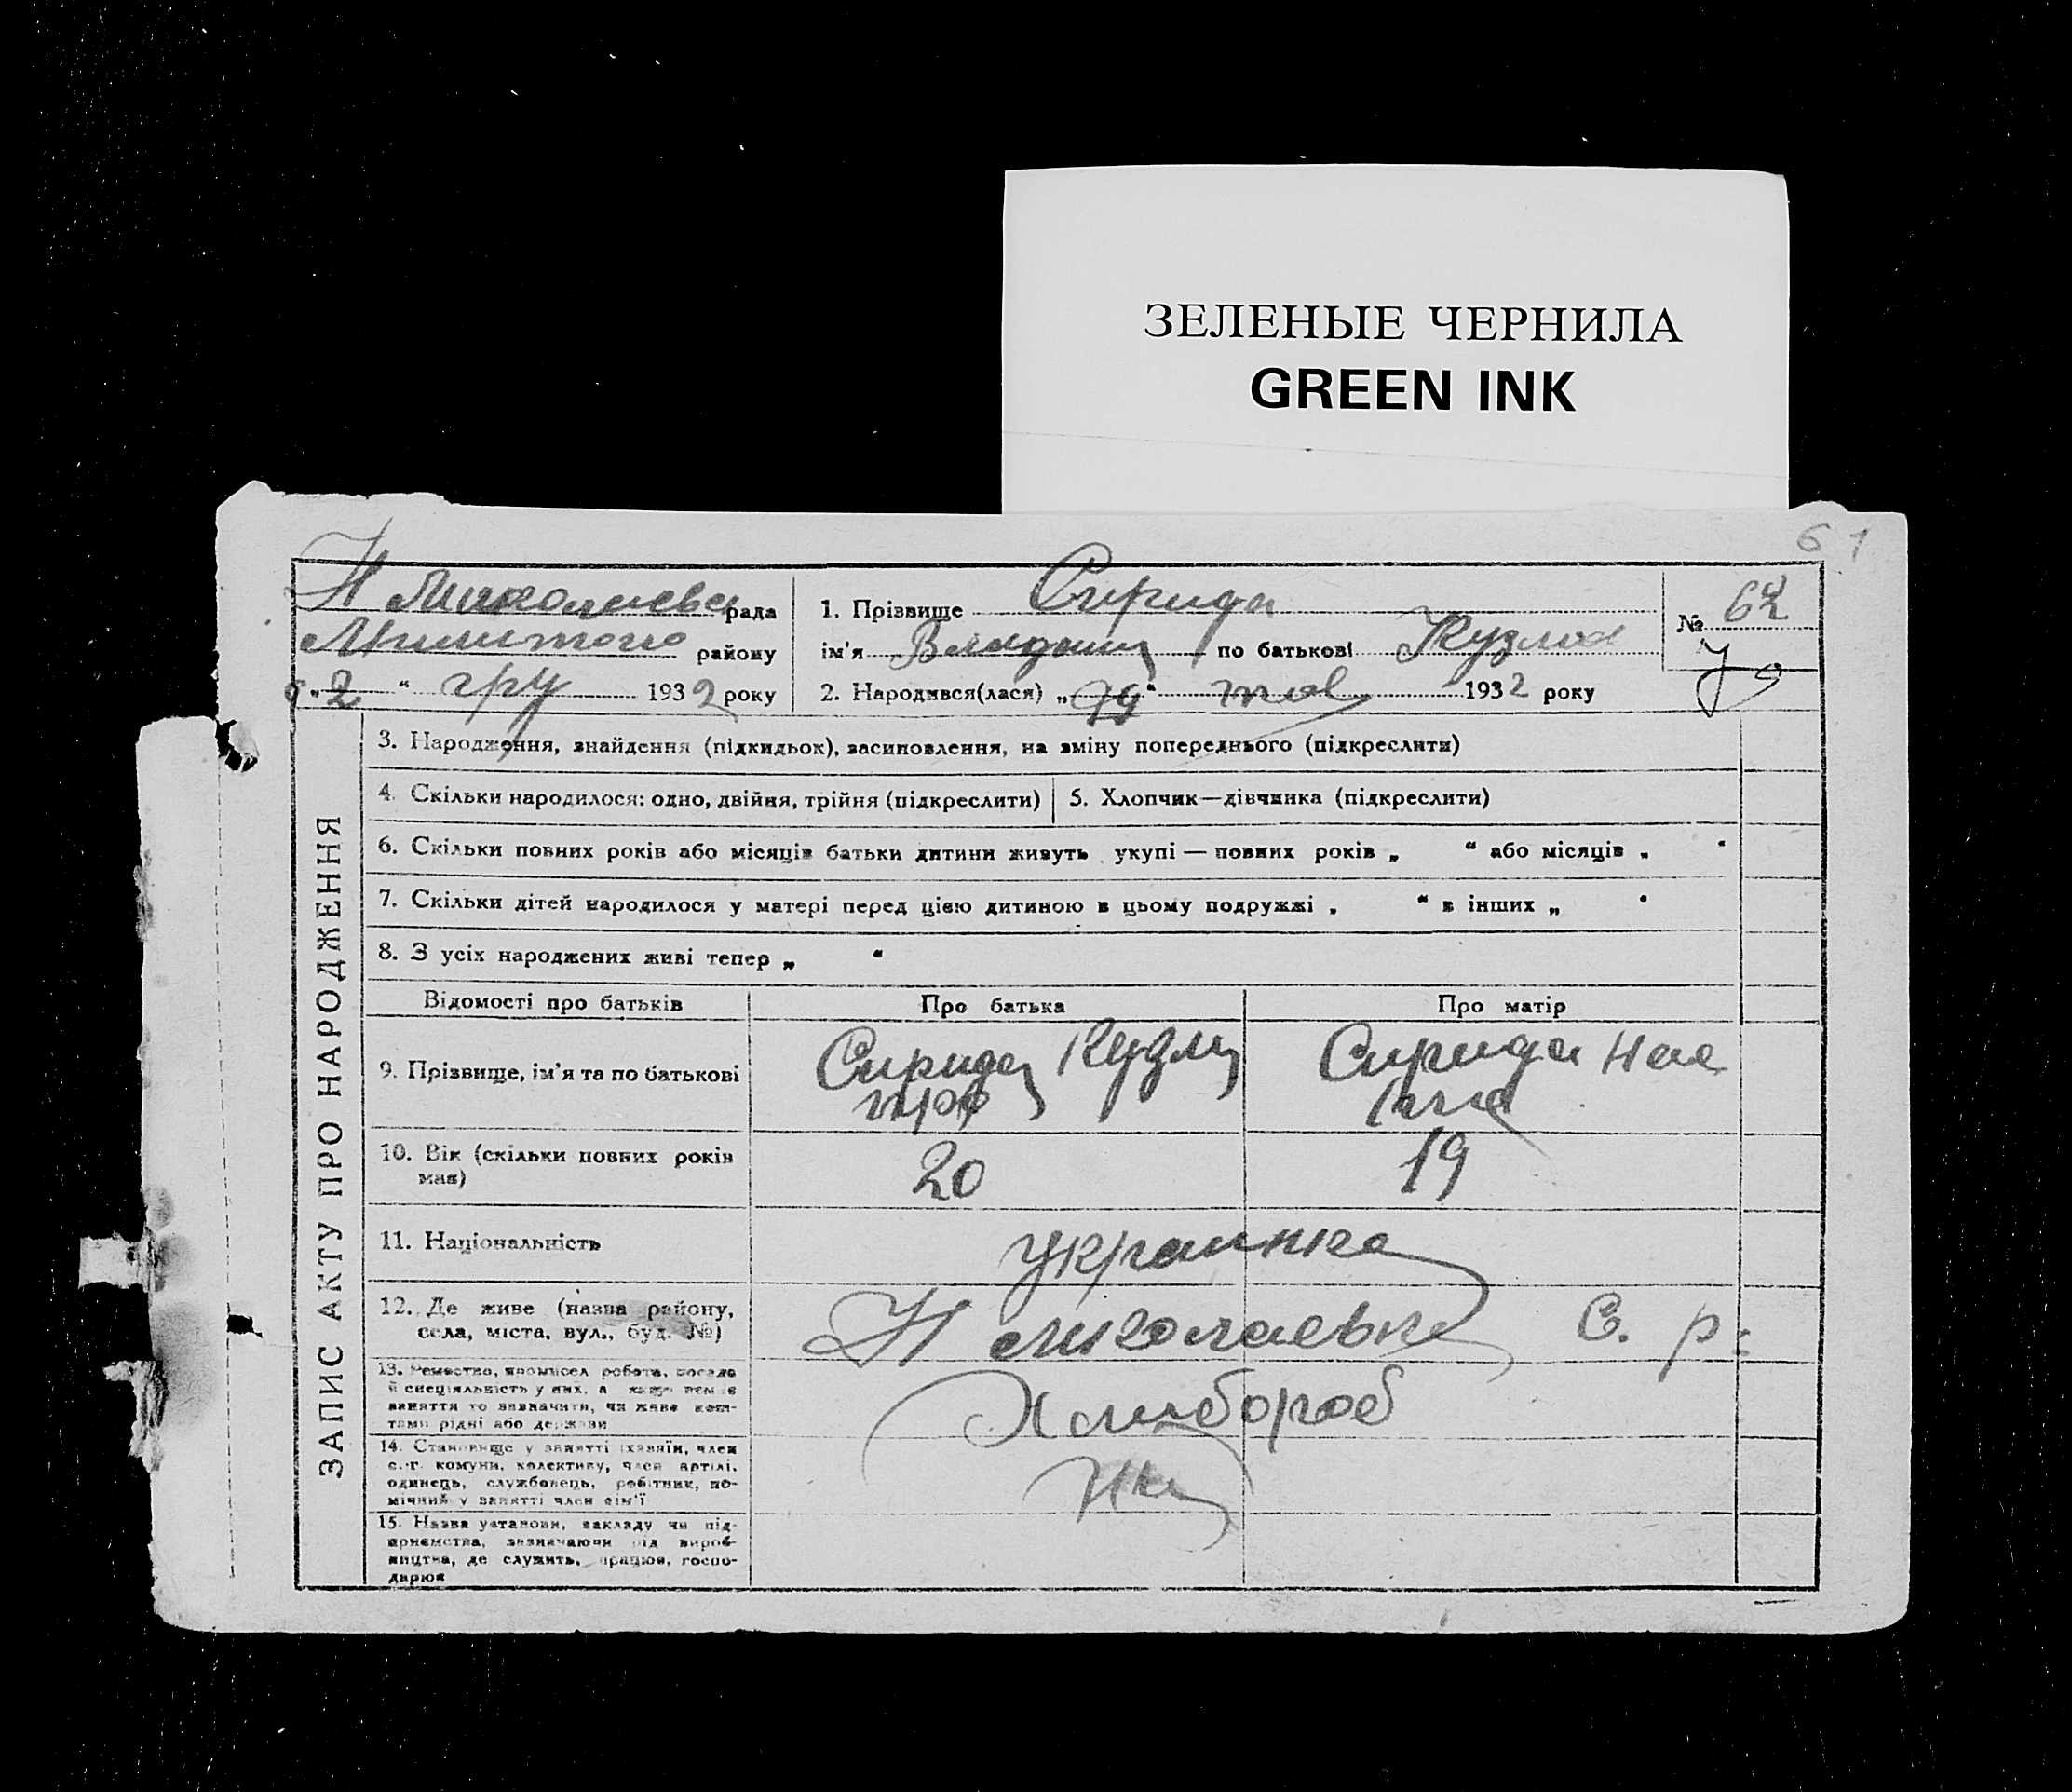 ЗЕЛЕНЫЕ ЧЕРНИЛА
GREEN INK
61
Н Миколаевка рада
району
2 " гру 1932 року
1. Прізвище Сприда
ім'я по батькові Кузмов
2. Народився(лася) „19" 1932 року
№ 62
ЗАПИС АКТУ ПРО НАРОДЖЕННЯ
3. Народження, знайдення (підкидьок), засиновлення, на зміну попереднього (підкреслити)
4. Скільки народилося: одно, двійня, трійня (підкреслити)
5. Хлопчик—дівчинка (підкреслити)
6. Скільки повних років або місяців батьки дитини живуть укупі — повних років „ " або місяців „ "
7. Скільки дітей народилося у матері перед цією дитиною в цьому подружжі „ " в інших „ "
8. З усіх народжених живі тепер „ "
Відомості про батьків
Про батька
Про матір
9. Прізвище, ім'я та по батькові
Сприда
Сприда
10. Вік (скільки повних років має)
20
19
11. Національність
украинка
12. Де живе (назва району,
села, міста, вул., буд. №)
Н миколаевка С. р.
13. Ремество, промисел робота, посада
й спеціяльність у них, а якщо немає
заняття то зазначити, чи живе кош-
тами рідні або держави
Хлибороб
14. Становище у занятті (хазяїн, член
с.-г. комуни, колективу, член артілі,
одинець, службовець, робітник, по-
мічний у занятті член сім'ї
15. Назва установи, закладу чи під-
приємства, зазначаючи від вироб-
ництва, де служить, працює, госпо-
дарює